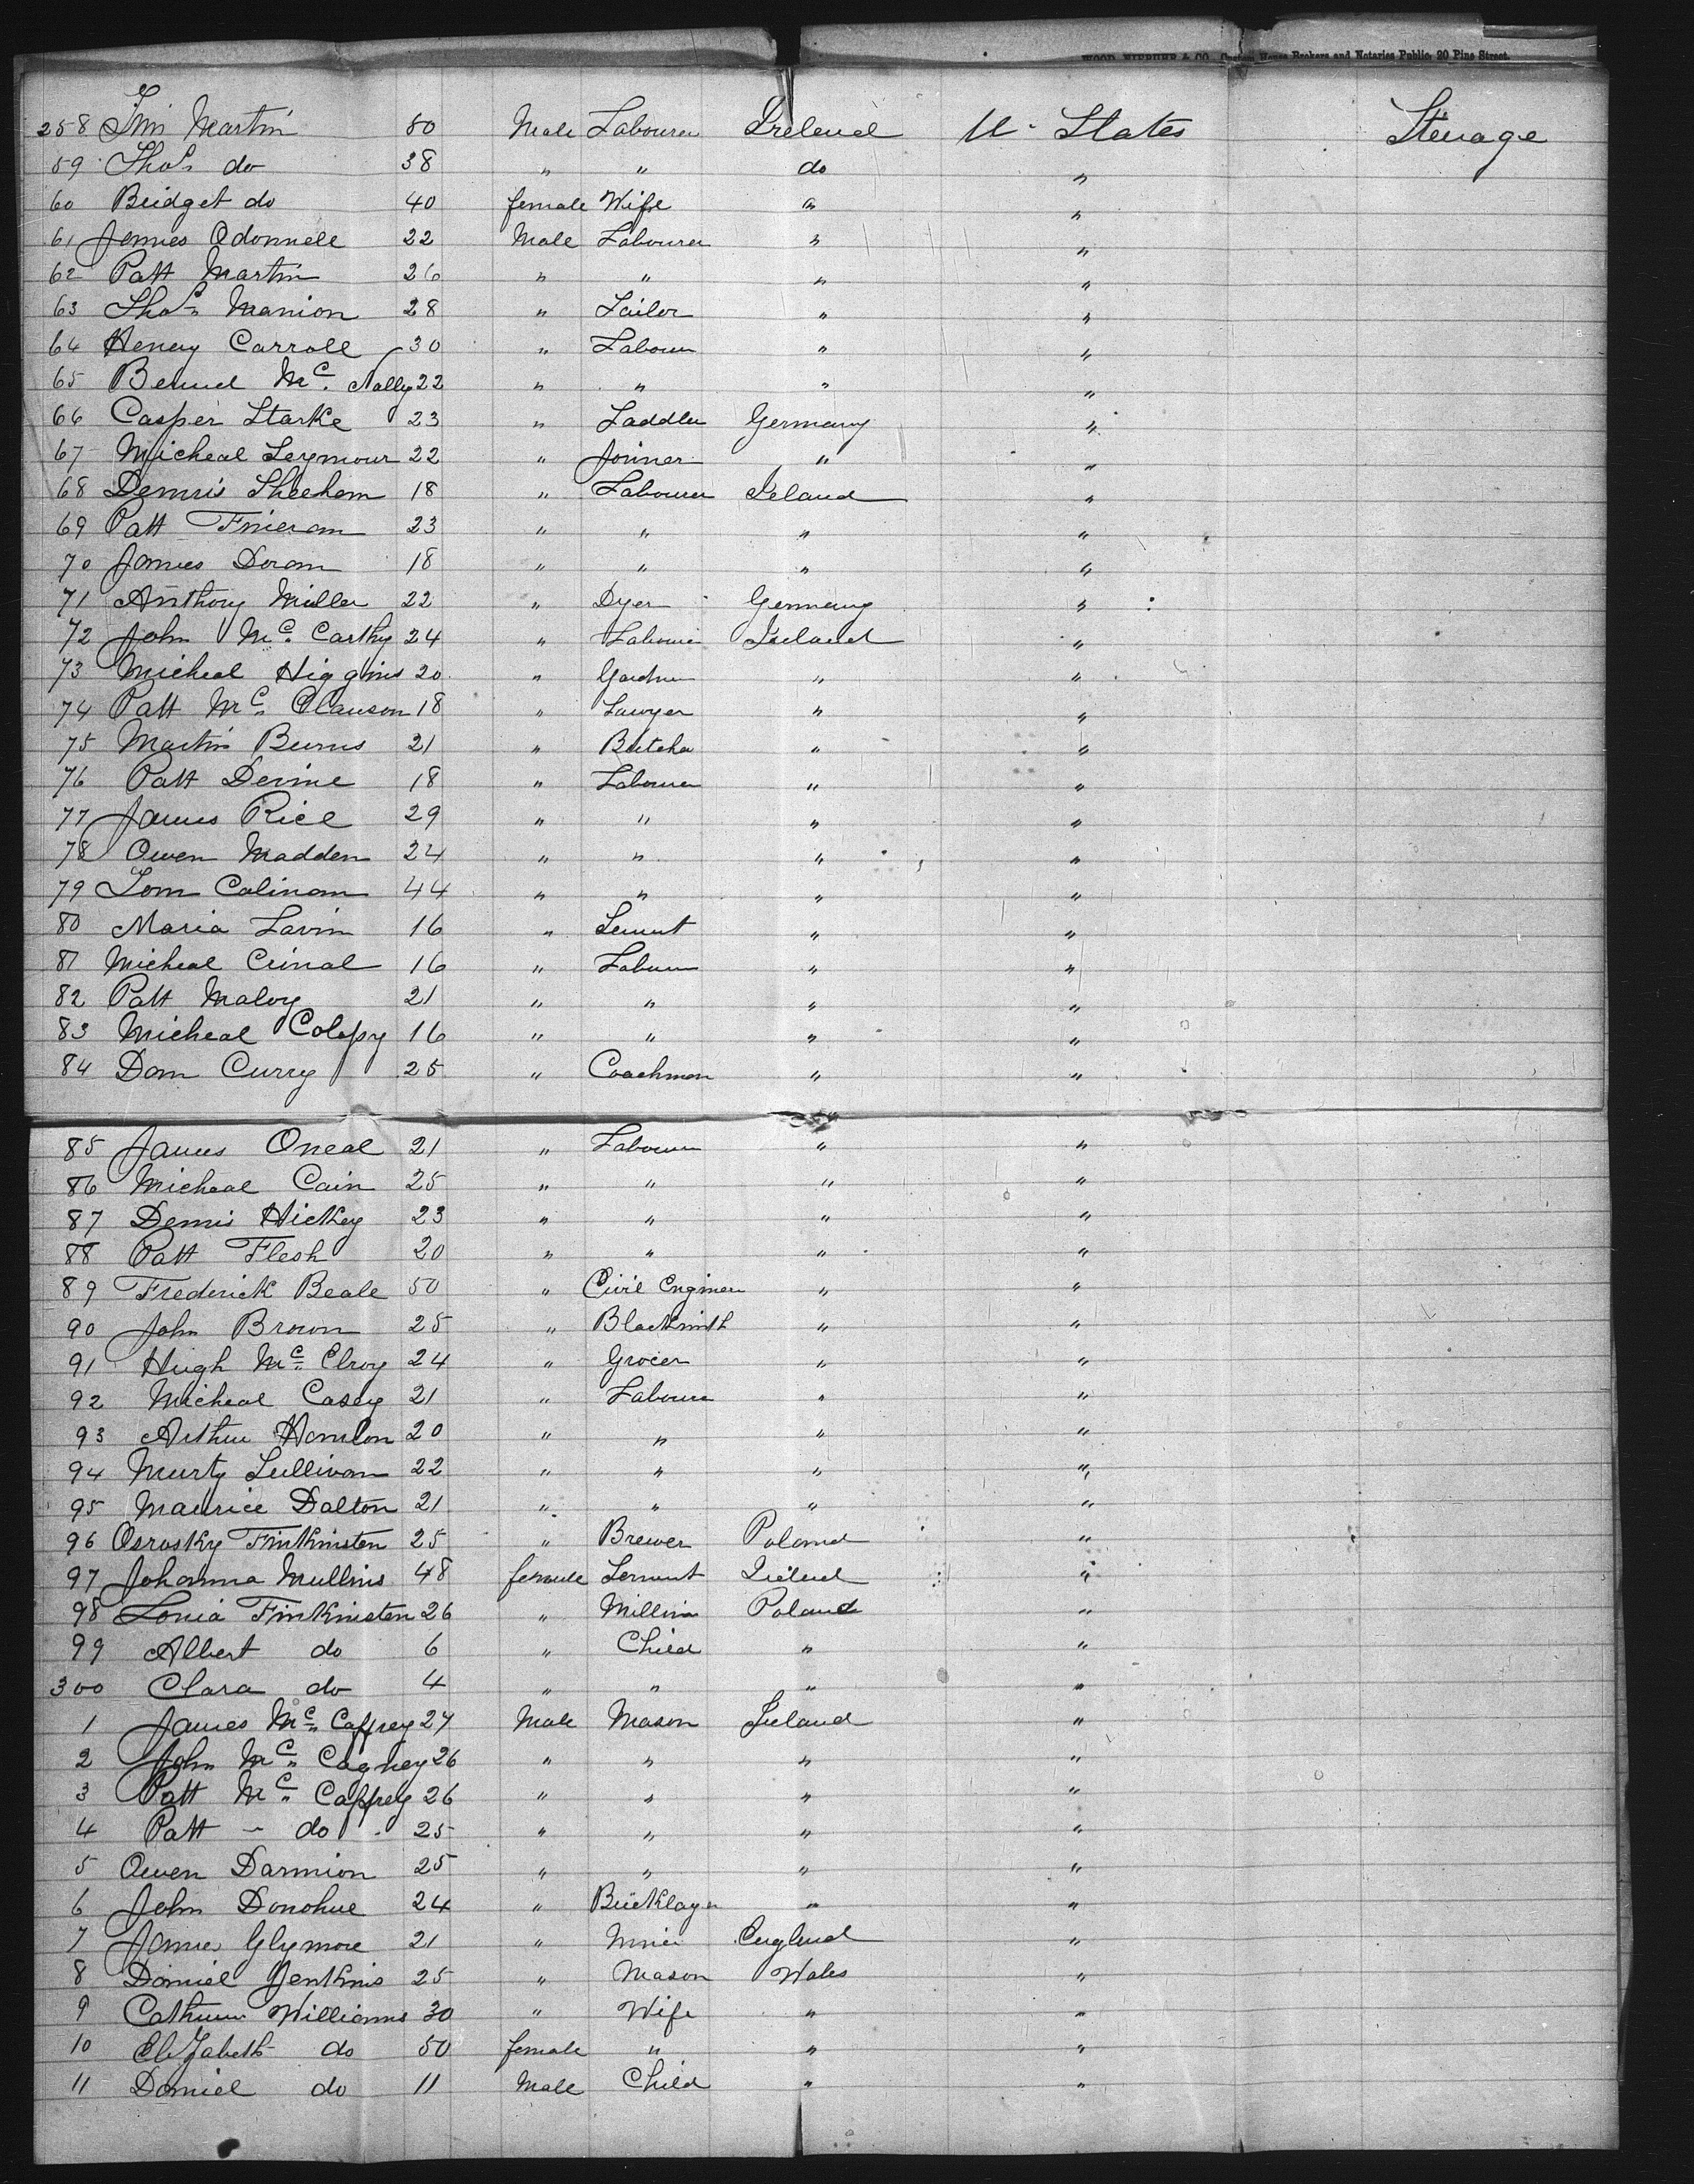 Custom House Brokers and Notaries Public, 20 Pine Street.
258 Tim Martin 50 Male Labourer Ireland U. States Steerage
59 Thos do 38 " " do "
60 Bridget do 40 female Wife " "
61 James Odonnell 22 Male Labourer " "
62 Patt Martin 26 " " " "
63 Thos Manion 28 " Tailor " "
64 Henery Carroll 30 " Labourer " "
65 Bernd Mc. Nally 22 " " " "
66 Casper Starke 23 " Saddler Germany "
67 Micheal Seymour 22 " Joiner " "
68 Dennis Sheehan 18 " Labourer Ireland "
69 Patt Fineran 23 " " " "
70 James Doran 18 " " " "
71 Anthony Miller 22 " Dyer Germany "
72 John Mc. Carthy 24 " Labourer Ireland "
73 Micheal Higgins 20 " Gardner " "
74 Patt Mc. Clauson 18 " Sawyer " "
75 Martin Burns 21 " Butcher " "
76 Patt Devine 18 " Labourer " "
77 James Rice 29 " " " "
78 Owen Madden 24 " " " "
79 Tom Calinan 44 " " " "
80 Maria Lavin 16 " Servnt " "
81 Micheal Crinal 16 " Labourer " "
82 Patt Maloy 21 " " " "
83 Micheal Colopy 16 " " " "
84 Dom Curry 25 " Coachman " "
85 James Oneal 21 " Labourer " "
86 Micheal Cain 25 " " " "
87 Dennis Hickey 23 " " " "
88 Patt Flesh 20 " " " "
89 Frederick Beale 50 " Civil Engineer " "
90 John Brown 25 " Blacksmith " "
91 Hugh Mc. Elroy 24 " Grocer " "
92 Micheal Casey 21 " Labourer " "
93 Arthur Hanlon 20 " " " "
94 Murty Sullivan 22 " " " "
95 Maurice Dalton 21 " " " "
96 Osrosky Finkinsten 25 " Brewer Poland "
97 Johanna Mullins 48 female Servnt Ireland "
98 Sonia Finkinsten 26 " Poland "
99 Albert do 6 " Child " "
300 Clara do 4 " " " "
1 James Mc. Caffrey 27 Male Mason Ireland "
2 John Mc. Cagney 26 " " " "
3 Patt Mc. Caffrey 26 " " " "
4 Patt - do 25 " " " "
5 Owen Darmion 25 " " " "
6 John Donohue 24 " Bricklayer " "
7 James Glymore 21 " Miner England "
8 Daniel Jenkins 25 " Mason Wales "
9 Cathrine Williams 30 " Wife " "
10 Elizabeth do 50 female " " "
11 Daniel do 11 Male Child " "